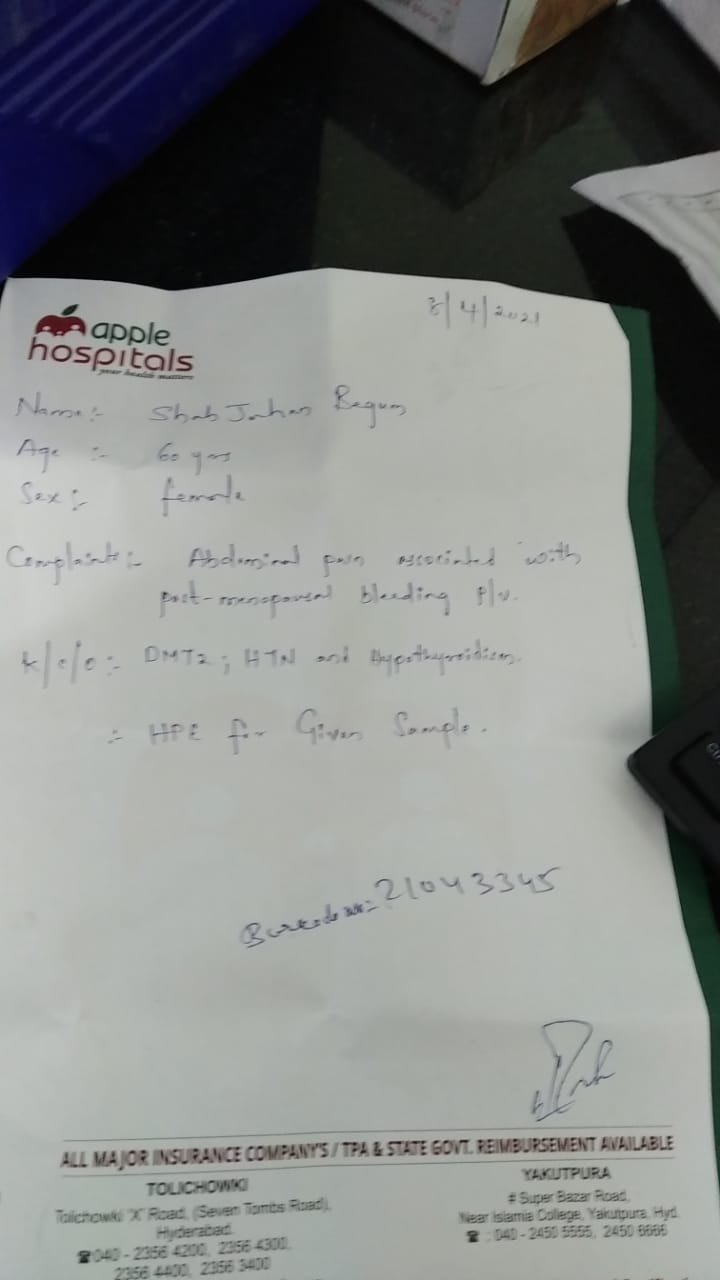 apple
hospitals
your health matters
8/4/2021
Name:- Shah Jahan Begum
Age :- 60 yrs
Sex :- female
Complaints:- Abdominal pain associated with
post-menopausal bleeding P/V.
k/c/o:- DMT2; HTN and Hypothyroidism.
:- HPE for Given Sample.
Barcode no:- 21043345
ALL MAJOR INSURANCE COMPANY'S / TPA & STATE GOVT. REIMBURSEMENT AVAILABLE
TOLICHOWKI
Tolichowki 'X' Road, (Seven Tombs Road),
Hyderabad.
☎040 - 2356 4200, 2356 4300,
2356 4400, 2356 3400
YAKUTPURA
# Super Bazar Road,
Near Islamia College, Yakutpura, Hyd.
☎ : 040 - 2450 5555, 2450 6666